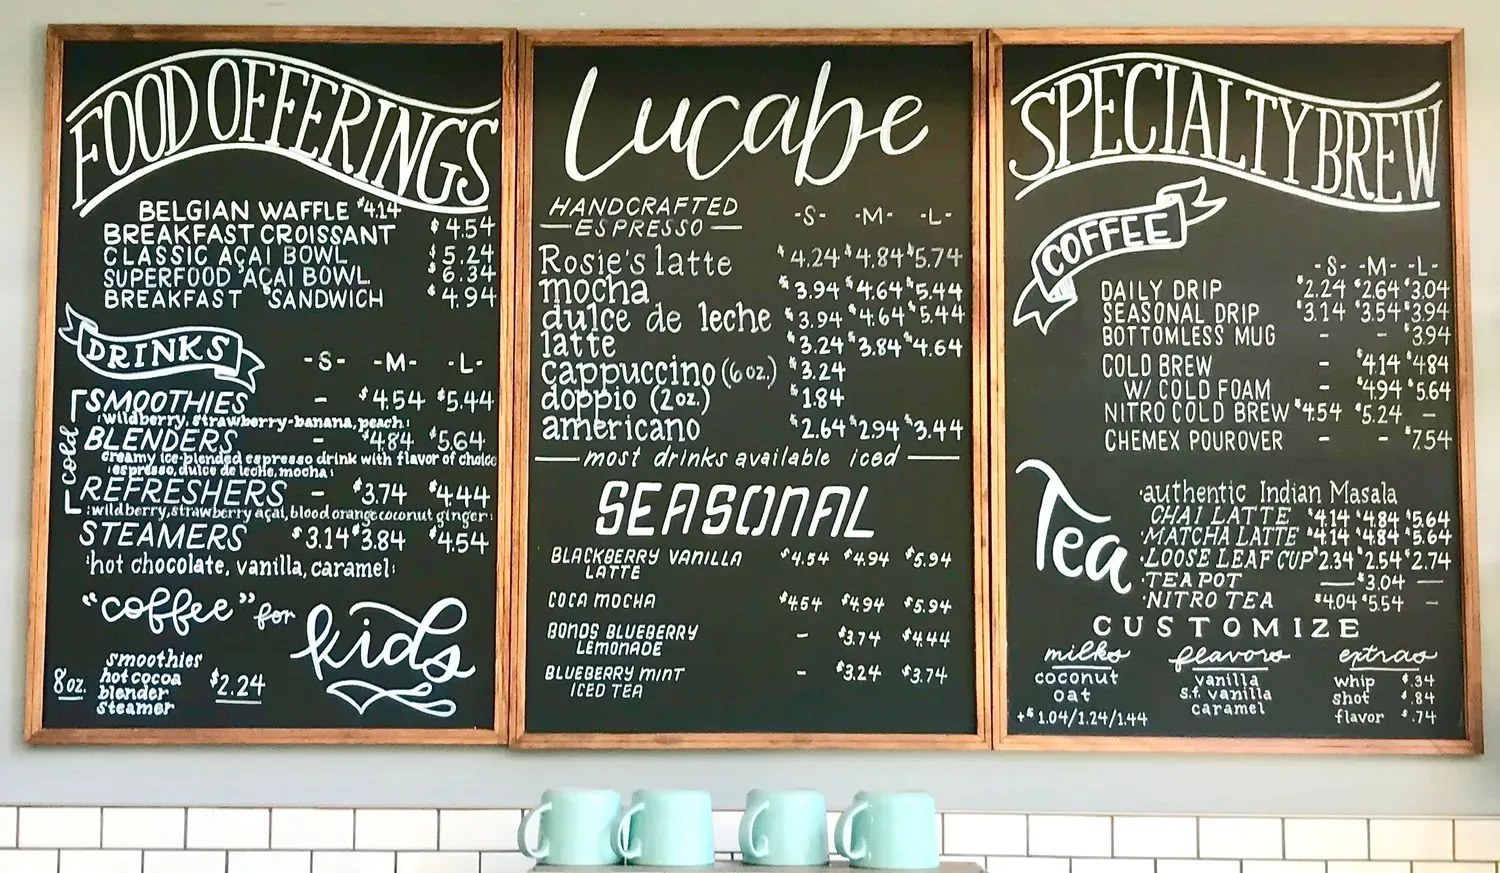 FOOD OFFERINGS
BELGIAN WAFFLE $4.14
BREAKFAST CROISSANT $4.54
CLASSIC AÇAI BOWL $5.24
SUPERFOOD AÇAI BOWL $6.34
BREAKFAST SANDWICH $4.94
DRINKS -S- -M- -L-
cold
SMOOTHIES - $4.54 $5.44
:wildberry, strawberry-banana, peach:
BLENDERS - $4.84 $5.64
creamy ice-blended espresso drink with flavor of choice
:espresso, dulce de leche, mocha:
REFRESHERS - $3.74 $4.44
:wildberry, strawberry açai, blood orange, coconut ginger:
STEAMERS $3.14 $3.84 $4.54
:hot chocolate, vanilla, caramel:
"coffee" for kids
8oz.
smoothies
hot cocoa
blender
steamer
$2.24
Lucabe
HANDCRAFTED
— ESPRESSO — -S- -M- -L-
Rosie's latte $4.24 $4.84 $5.74
mocha $3.94 $4.64 $5.44
dulce de leche $3.94 $4.64 $5.44
latte $3.24 $3.84 $4.64
cappuccino (6oz.) $3.24
doppio (2oz.) $1.84
americano $2.64 $2.94 $3.44
— most drinks available iced —
SEASONAL
BLACKBERRY VANILLA $4.54 $4.94 $5.94
LATTE
COCA MOCHA $4.54 $4.94 $5.94
BONDS BLUEBERRY - $3.74 $4.44
LEMONADE
BLUEBERRY MINT - $3.24 $3.74
ICED TEA
SPECIALTY BREW
COFFEE
-S- -M- -L-
DAILY DRIP $2.24 $2.64 $3.04
SEASONAL DRIP $3.14 $3.54 $3.94
BOTTOMLESS MUG - - $3.94
COLD BREW - $4.14 $4.84
W/ COLD FOAM - $4.94 $5.64
NITRO COLD BREW $4.54 $5.24 -
CHEMEX POUROVER - - $7.54
Tea
·authentic Indian Masala
CHAI LATTE $4.14 $4.84 $5.64
·MATCHA LATTE $4.14 $4.84 $5.64
·LOOSE LEAF CUP $2.34 $2.54 $2.74
·TEA POT — $3.04 —
·NITRO TEA $4.04 $5.54 -
CUSTOMIZE
milks
coconut
oat
+$1.04/1.24/1.44
flavors
vanilla
s.f. vanilla
caramel
extras
whip $.34
shot $.84
flavor $.74